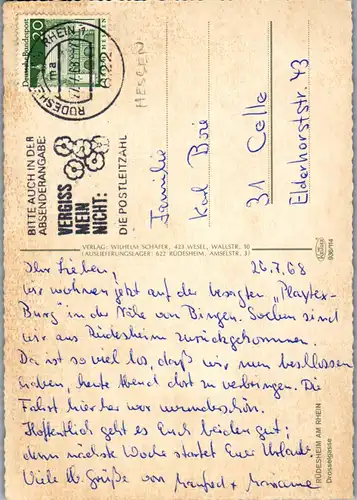 RÜDESHEIM AM RHEIN 1
622
ma
27.7.68
Deutsche Bundespost
20
HESSEN
BITTE AUCH IN DER
ABSENDERANGABE:
VERGISS
MEIN
NICHT:
DIE POSTLEITZAHL
Familie
Karl Boie
31 Celle
Elderhorststr. 43
VERLAG: WILHELM SCHÄFER, 423 WESEL, WALLSTR. 10
(AUSLIEFERUNGSLAGER: 622 RÜDESHEIM, AMSELSTR. 3)
936/114
RÜDESHEIM AM RHEIN
Drosselgasse
Ihr Lieben! 26.7.68
wir wohnen jetzt auf der besagten "Playtex-
Burg" in der Nähe von Bingen. Soeben sind
wir aus Rüdesheim zurückgekommen.
Da ist so viel los, daß wir nun beschlossen
haben, heute Abend dort zu verbringen. Die
Fahrt hierher war wunderschön.
Hoffentlich geht es Euch beiden gut;
denn nächste Woche startet Euer Urlaub.
Viele lb. Grüße von Manfred + Marianne